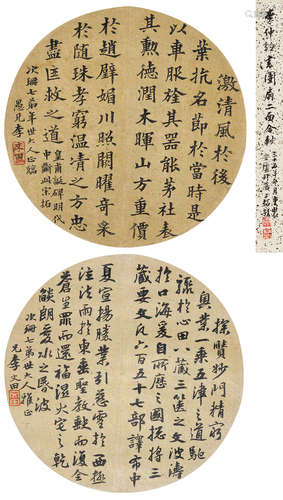 激清風於後
葉抗名節於當時
以車服銓其器能茅社表
其勳德潤木暉山方重價
於趙璧媚川照闕曜奇采
於隨珠孝窮溫凊之方忠
盡匡救之道 皇甫誕碑明代
中斷此宋拓
次珊七弟世大人正臨
愚兄李
探賾妙門精窮
奧業一乘五律之道馳
驟於心田八藏三篋之文波濤
於口海爰自所歷之國摠將三
藏要文凡六百五十七部譯布中
夏宣揚勝業引慈雲於西極
注法雨於東垂聖教缺而復全
蒼生罪而還福濕火宅之乾
燄朗愛水之昏波
次珊七弟世大人雅正
兄李文田
李仲約書團扇二面合軸